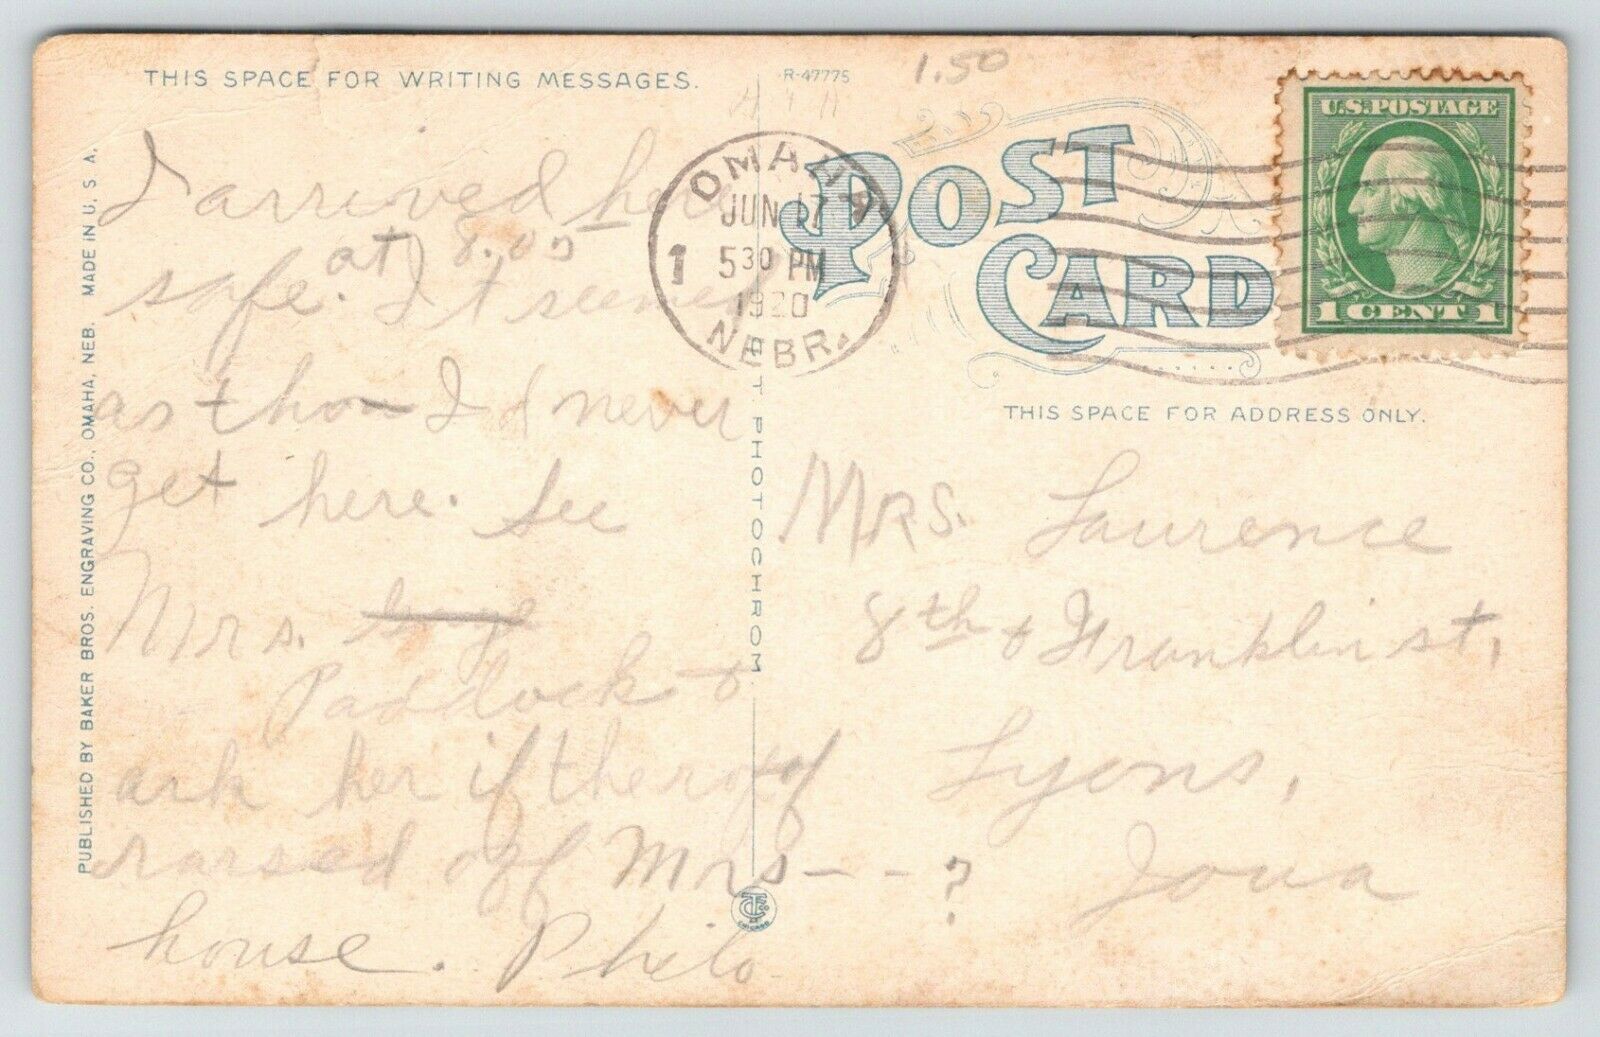 THIS SPACE FOR WRITING MESSAGES.
R-47775
1.50
I arrived here
at 8.05
safe. It seemed
as tho I'd never
get here. See
Mrs.
Paddock &
ask her if the roof
raised off Mrs - - - ?
house. Philo
PUBLISHED BY BAKER BROS. ENGRAVING CO., OMAHA, NEB. MADE IN U. S. A.
PHOTOCHROM
OMAHA
JUN 17
5 30 PM
1920
NEBR.
1
POST
CARD
U.S. POSTAGE
1 CENT 1
THIS SPACE FOR ADDRESS ONLY.
MRS. Laurence
8th & Franklin st,
Lyons,
Iowa
CHICAGO